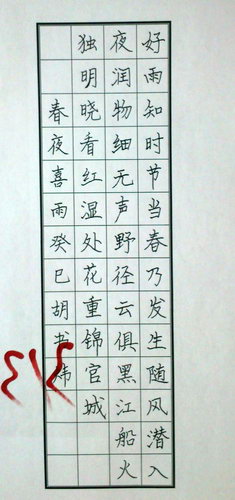 好雨知时节当春乃发生随风潜入
夜润物细无声野径云俱黑江船火
独明晓看红湿处花重锦官城
春夜喜雨癸巳胡书